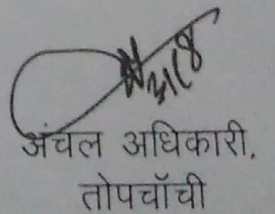 अंचल अधिकारी,
तोपचॉची